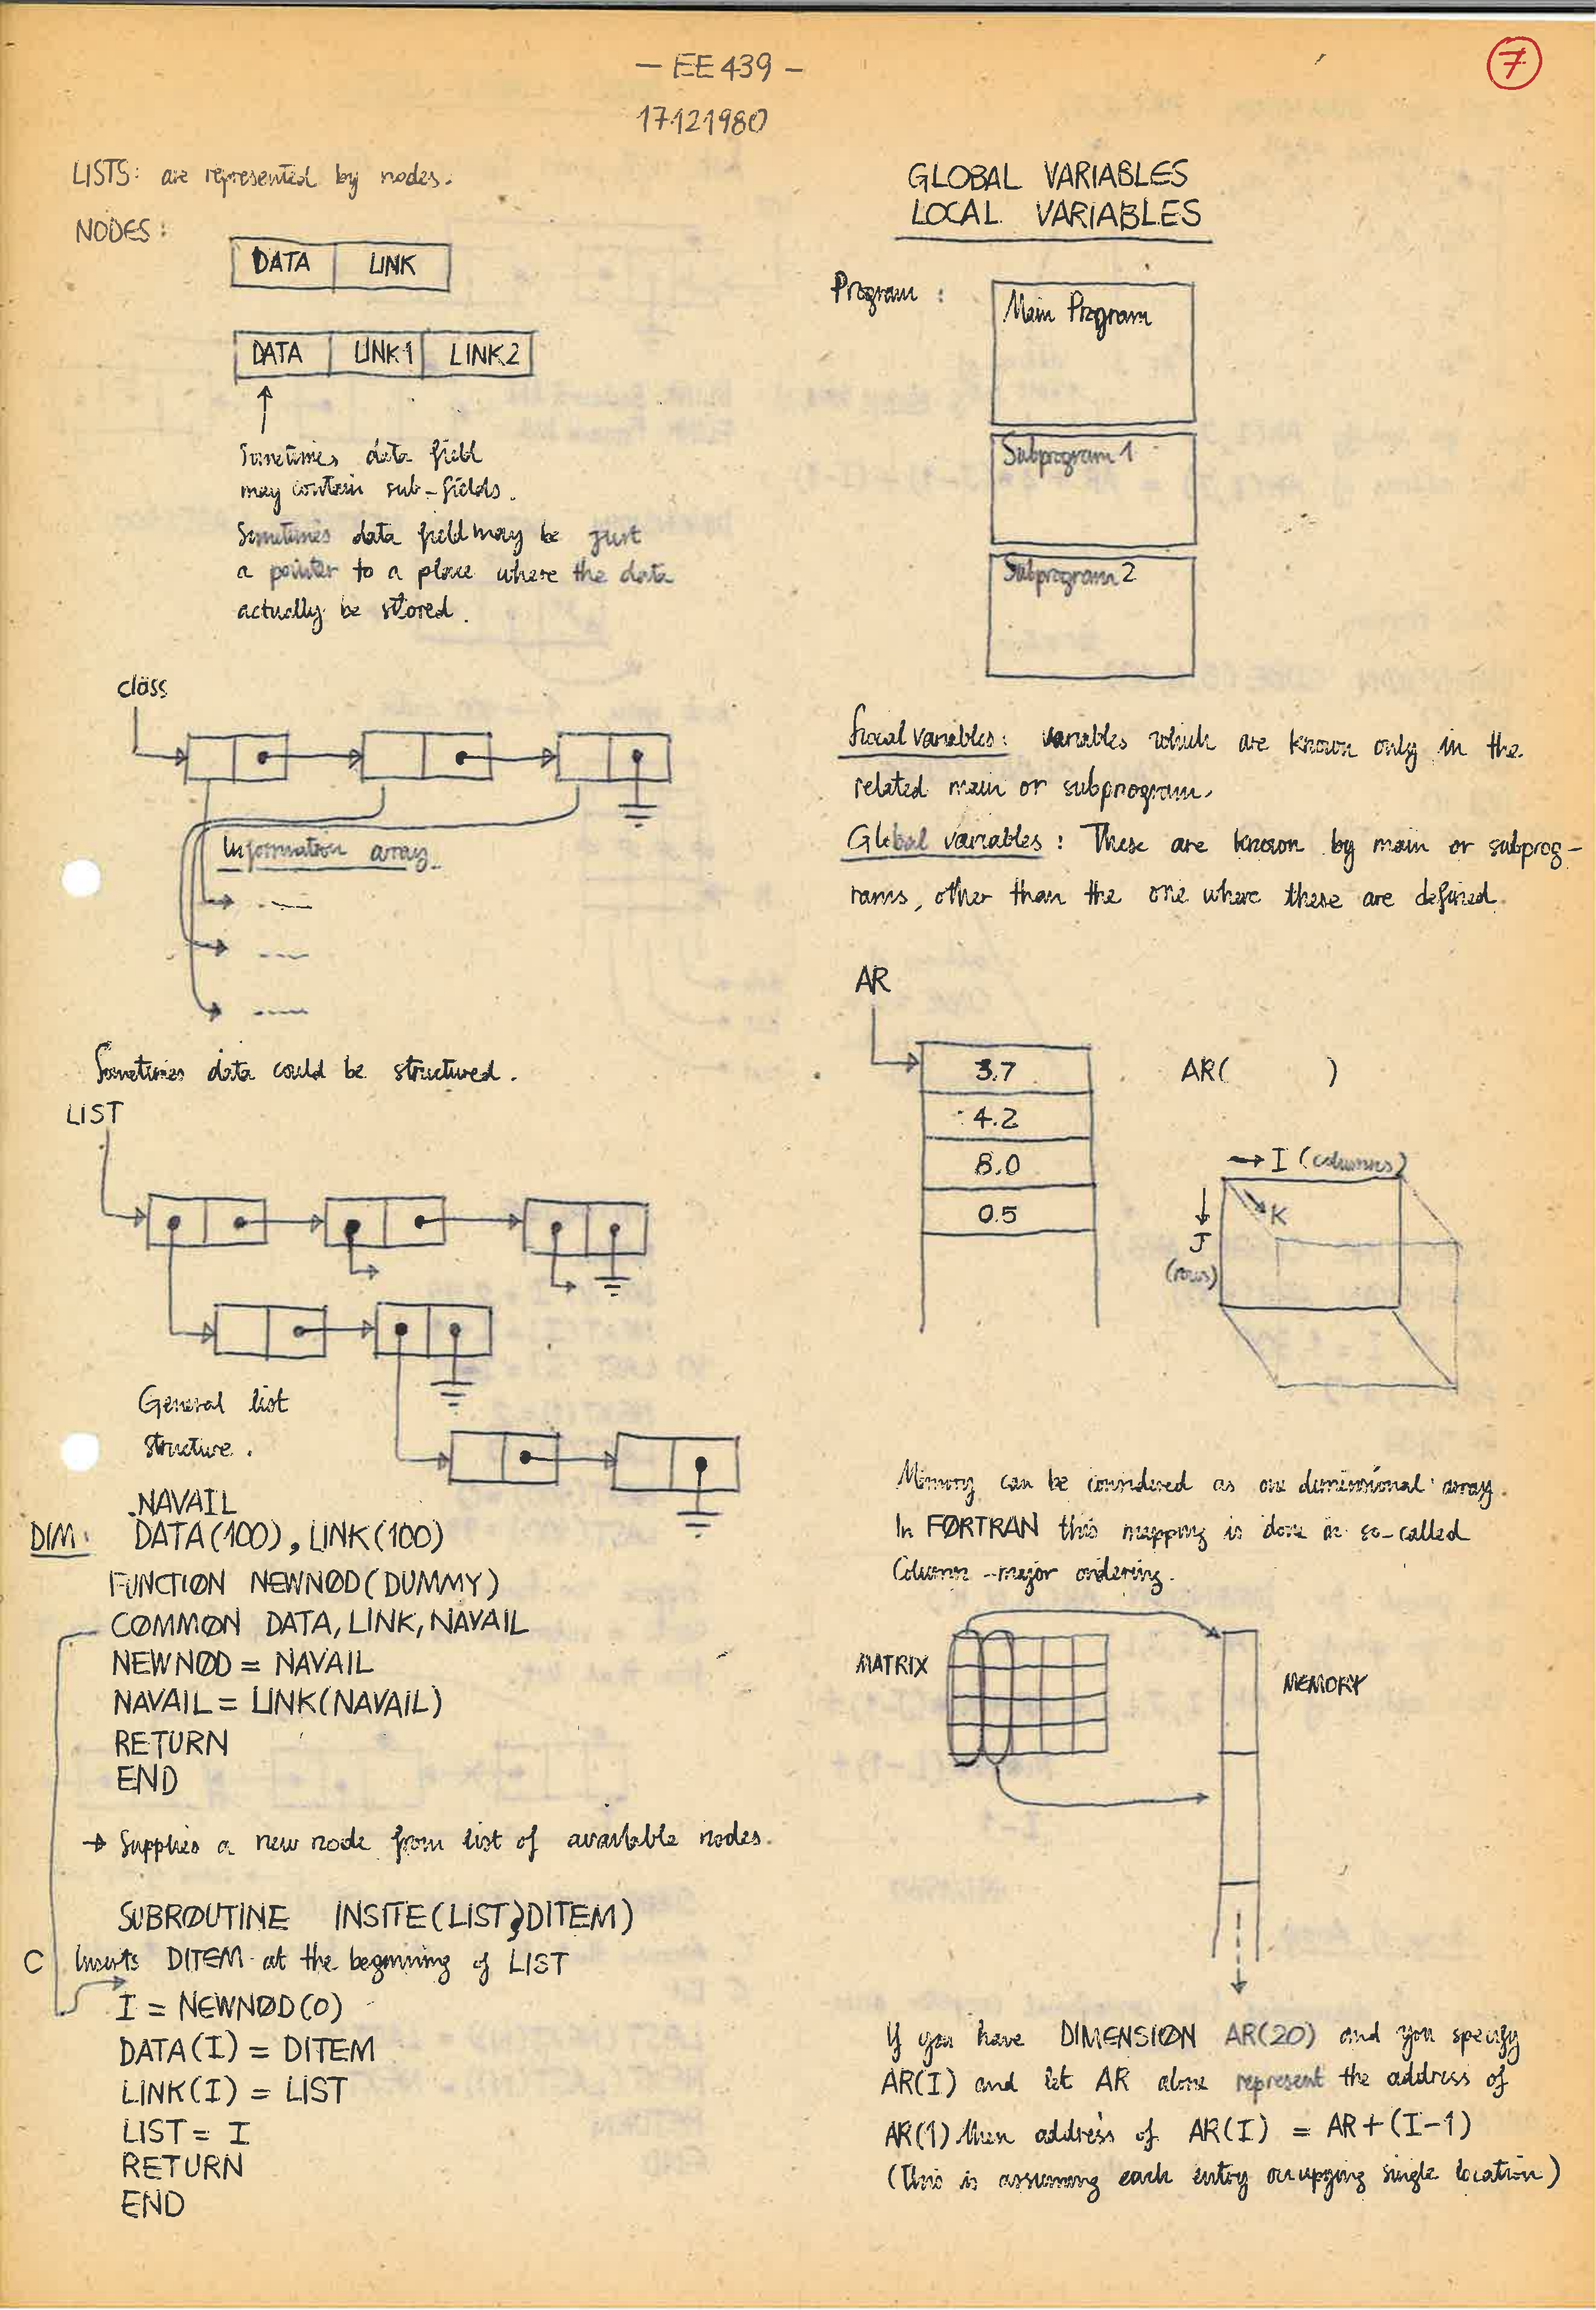 — EE 439 —
7
17.12.1980
LISTS: are represented by nodes.
NODES:
DATA LINK
DATA LINK1 LINK2
Sometimes data field
may contain sub-fields.
Sometimes data field may be just
a pointer to a place where the data
actually be stored.
class
Information array.
Sometimes data could be structured.
LIST
General list
structure.
NAVAIL
DIM: DATA(100), LINK(100)
FUNCTION NEWNØD(DUMMY)
COMMØN DATA, LINK, NAVAIL
NEWNØD = NAVAIL
NAVAIL = LINK(NAVAIL)
RETURN
END
→ Supplies a new node from list of available nodes.
SUBRØUTINE INSITE(LIST,DITEM)
C Inserts DITEM at the beginning of LIST
I = NEWNØD(0)
DATA(I) = DITEM
LINK(I) = LIST
LIST = I
RETURN
END
GLOBAL VARIABLES
LOCAL VARIABLES
Program :
Main Program
Subprogram 1
Subprogram 2
Local variables: variables which are known only in the
related main or subprogram.
Global variables: These are known by main or subprog-
rams, other than the one where these are defined.
AR
3.7
4.2
8.0
0.5
AR( )
→ I (columns)
K
J
(rows)
Memory can be considered as one dimensional array.
In FØRTRAN this mapping is done in so-called
Column-major ordering.
MATRIX
MEMORY
If you have DIMENSIØN AR(20) and you specify
AR(I) and let AR alone represent the address of
AR(1) then address of AR(I) = AR+(I-1)
(This is assuming each entry occupying single location)